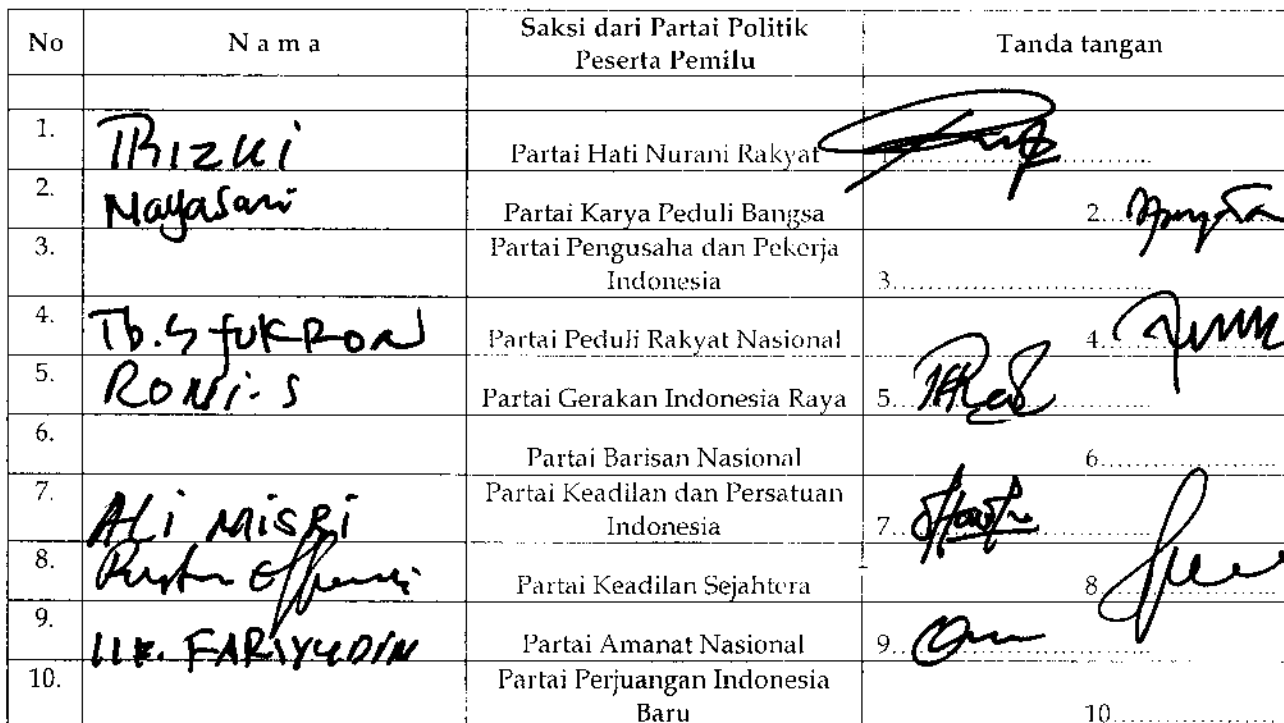 No N a m a Saksi dari Partai Politik Peserta Pemilu Tanda tangan
1. Rizki Partai Hati Nurani Rakyat
2. Mayasari Partai Karya Peduli Bangsa 2.
3. Partai Pengusaha dan Pekerja Indonesia 3.
4. Tb. Partai Peduli Rakyat Nasional 4.
5. RONI.S Partai Gerakan Indonesia Raya 5.
6. Partai Barisan Nasional 6.
7. ALi MISRI Partai Keadilan dan Persatuan Indonesia 7.
8. Partai Keadilan Sejahtera 8.
9. Partai Amanat Nasional 9.
10. Partai Perjuangan Indonesia Baru 10.